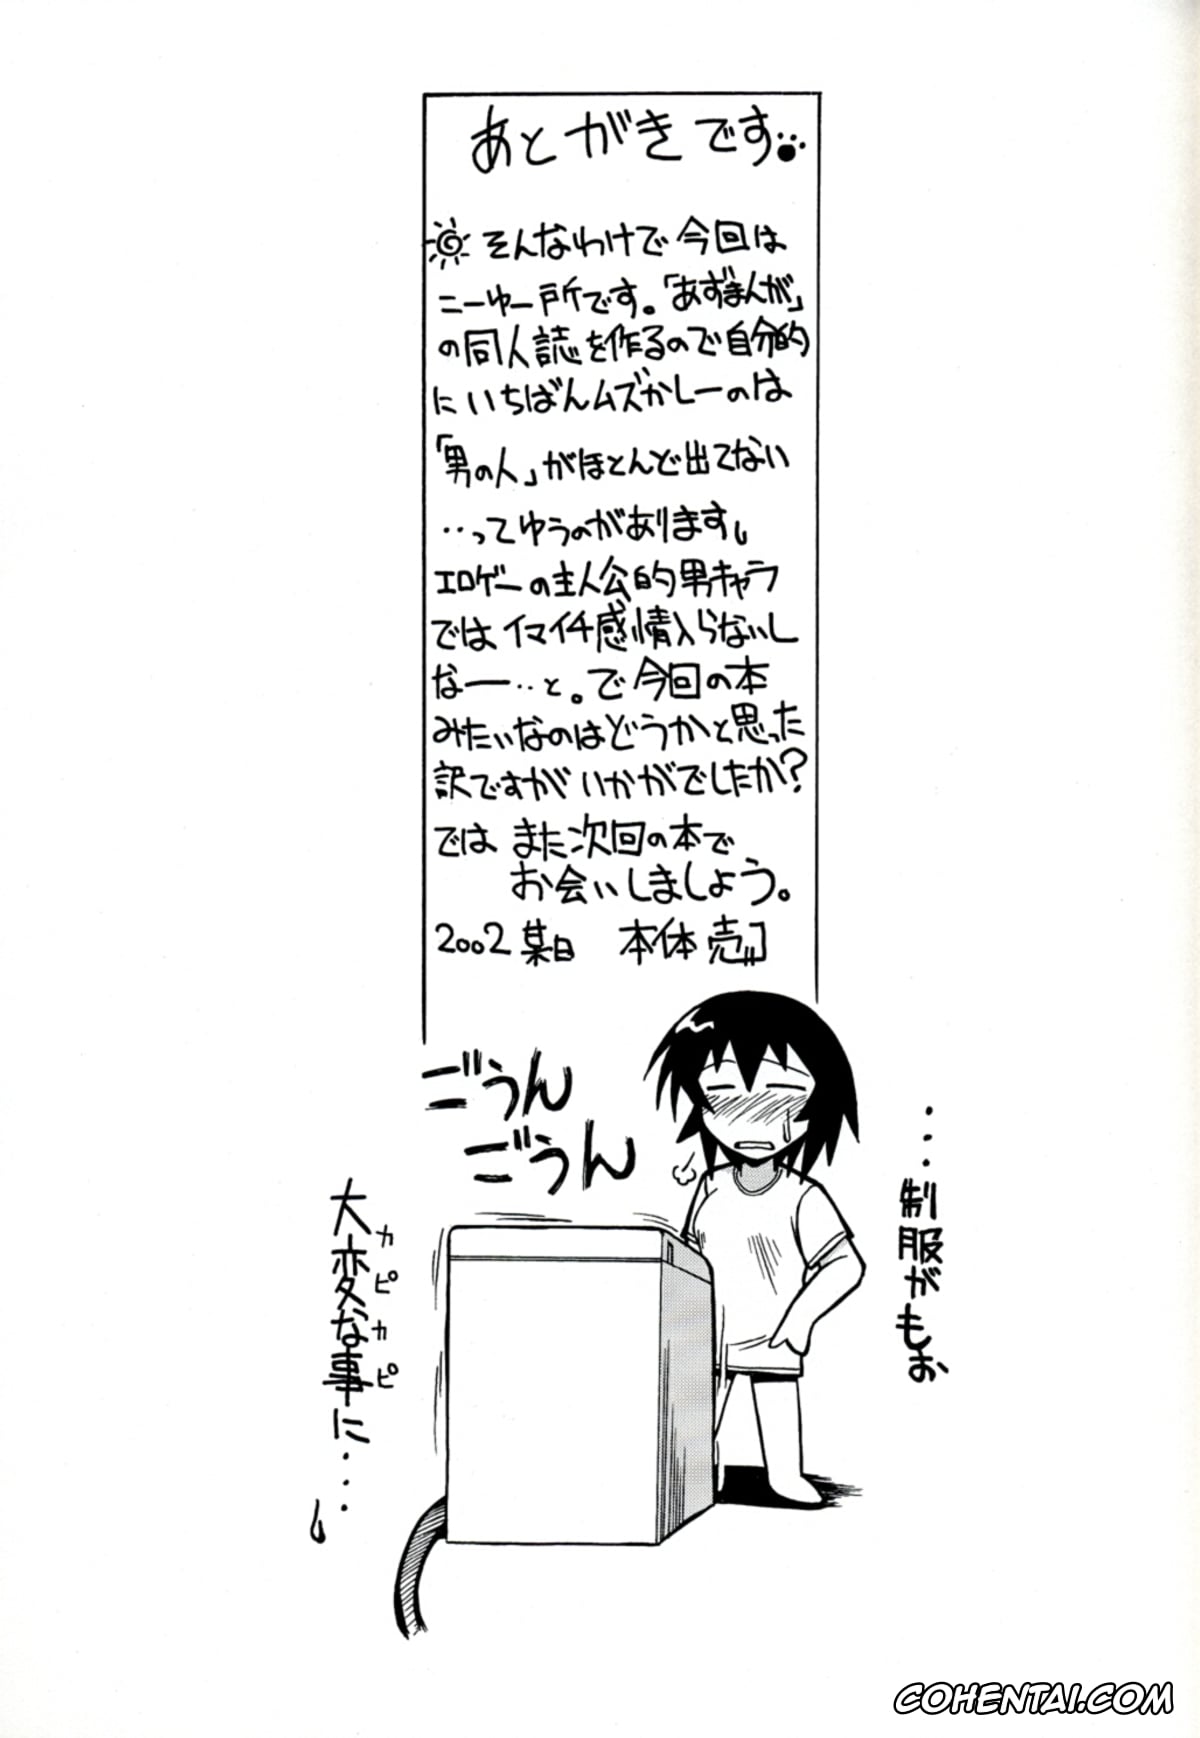 あとがきです
そんなわけで今回は
こーゆー所です。「あずまんが」
の同人誌を作るので自分的
にいちばんムズかしーのは
「男の人」がほとんど出てない
‥ってゆうのがあります。
エロゲーの主人公的男キャラ
ではイマイチ感情入らないし
なー‥と。で今回の本
みたいなのはどうかと思った
訳ですがいかがでしたか?
では また次回の本で
お会いしましょう。
2002 某日 本体 売
ごうん
ごうん
・・・制服がもお
大変な事に・・・・
カピカピ
COHENTAI.COM